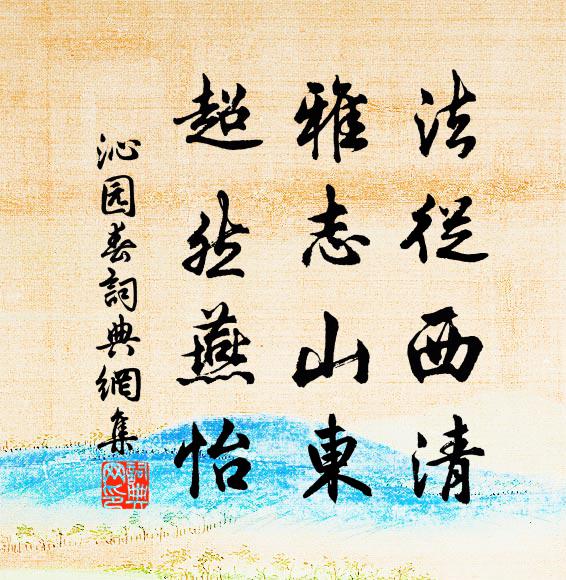 法從西清
雅志山東
超然燕怡
沁园春詞典網集